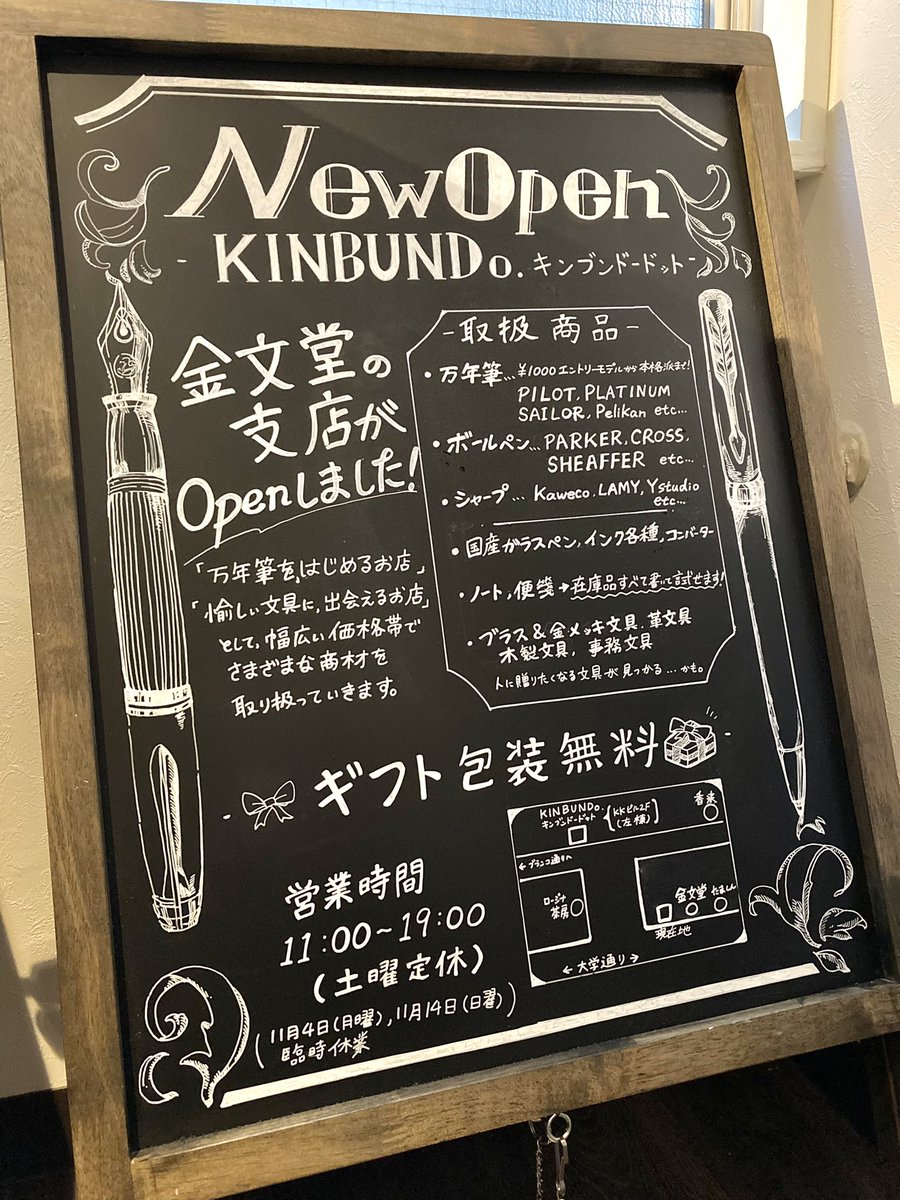 New Open
- KINBUNDo. キンブンドードット -
金文堂の
支店が
Openしました!
「万年筆を、はじめるお店」
「愉しい文具に、出会えるお店」
として、幅広い価格帯で
さまざまな商材を
取り扱っていきます。
-取扱商品-
・万年筆... ¥1000エントリーモデルから本格派まで!
PILOT, PLATINUM
SAILOR, Pelikan etc...
・ボールペン... PARKER, CROSS,
SHEAFFER etc...
・シャープ... Kaweco, LAMY, Ystudio
etc...
・国産ガラスペン, インク各種, コンバーター
・ノート, 便箋→在庫品すべて書いて試せます!
・ブラス&金メッキ文具, 革文具
木製文具, 事務文具
人に贈りたくなる文具が見つかる...かも。
- ギフト包装無料 -
営業時間
11:00~19:00
(土曜定休)
(11月4日(月曜), 11月14日(日曜)
臨時休業)
KINBUNDo.
キンブンドードット
KKビル2F
(左横)
香来
←ブランコ通りへ
ロージナ
茶房
金文堂
たましん
現在地
← 大学通り →